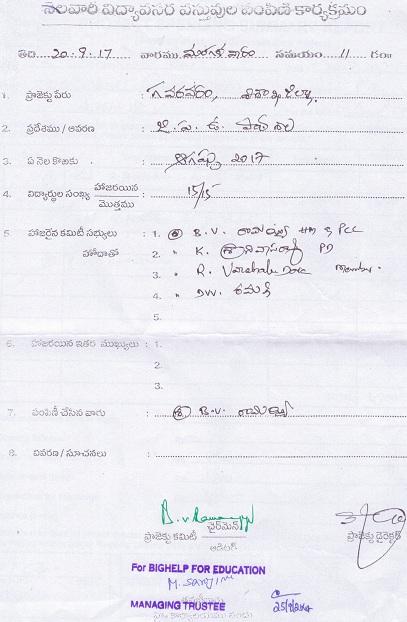 నెలవారీ విద్యావసర వస్తువుల పంపిణీ కార్యక్రమం
తేది 20-9-17 వారము మంగళవారం సమయం 11 గం॥
1. ప్రాజెక్టు పేరు : గవరవరం,
2. ప్రదేశము / ఆవరణ : జి. ప. ఉ. పాఠశాల
3. ఏ నెల కొఱకు : ఆగష్టు 2017
4. విద్యార్థుల సంఖ్య హాజరయిన / మొత్తము : 15/15
5. హాజరైన కమిటీ సభ్యులు : 1. శ్రీ B.V. రామయ్య HM & PCC
హోదాతో 2. " K. శ్రీనివాసరావు PD
3. " R. Varahalu Dora member.
4. " DVV.
5.
6. హాజరయిన ఇతర ముఖ్యులు : 1.
2.
3.
7. పంపిణీ చేసిన వారు : శ్రీ B.V. రామయ్య
8. వివరణ / సూచనలు :
B.V Ramayya
ప్రాజెక్టు కమిటీ ఛైర్మెన్ ప్రాజెక్టు డైరెక్టర్
ఆడిటర్
For BIGHELP FOR EDUCATION
M. Sanjini
MANAGING TRUSTEE